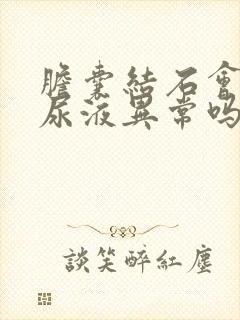 膽囊結石會
尿液異常嗎
談笑醉紅塵